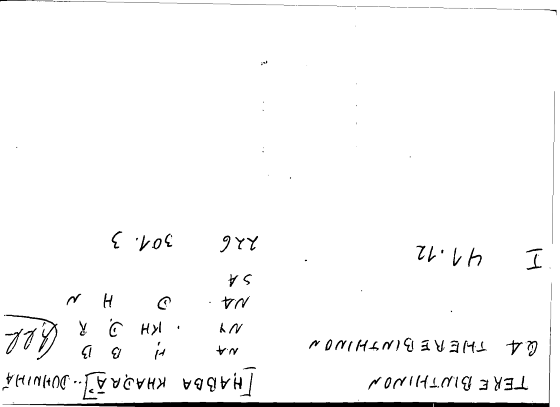 TEREBINTHINON [ḤABBA KHAḌRĀ]... DUHNIHĀ
Q4 THEREBINTHINON NA Ḥ B B
NY . KH Ḍ R
NA . D H N
SA
I 41.12 226 301.3